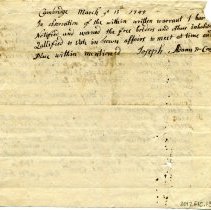 Cambridge March ye 13th 1749
In observation of the within written warrant I have
Notified and warned the free holders and other inhabi
Quallified to Vote in town affairs to meet at time an
Place within mentioned Joseph Adams